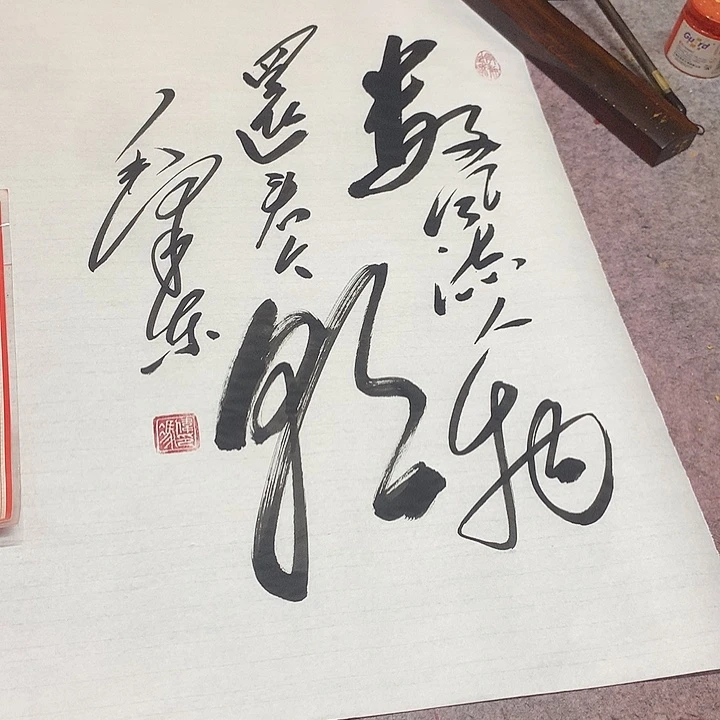 數風流人物
還看今朝